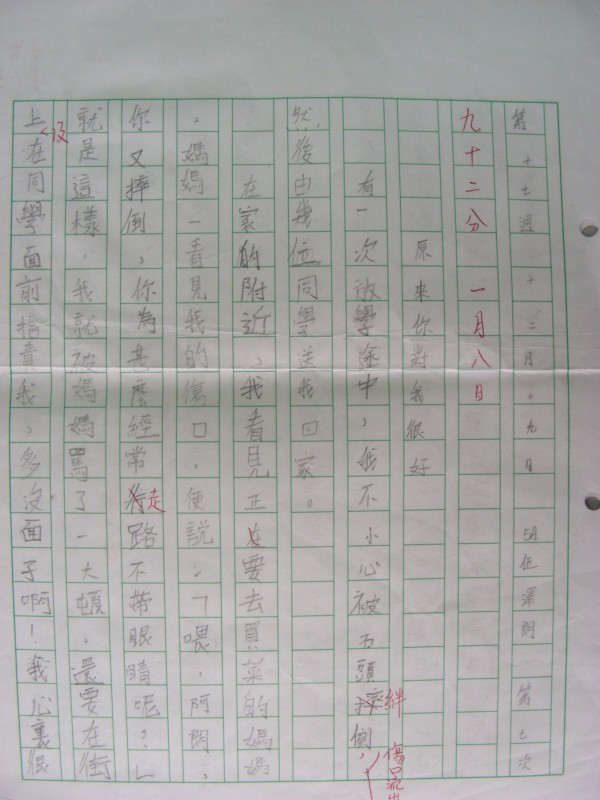 第十七週 十二月十九日 5A 伍澤朗 第七次
九十二分 一月八日
原來你對我很好
有一次放學途中，我不小心被石頭摔倒，
絆
傷口流
然後由幾位同學送我回家。
在家的附近，我看見正在要去買菜的媽媽
。媽媽一看見我的傷口，便說：「喂，阿朗，
你又摔倒，你為甚麼經常行路不帶眼睛呢？」
走
就是這樣，我就被媽媽罵了一大頓，還要在街
上在同學面前指責我，多沒面子啊！我心裏很
及